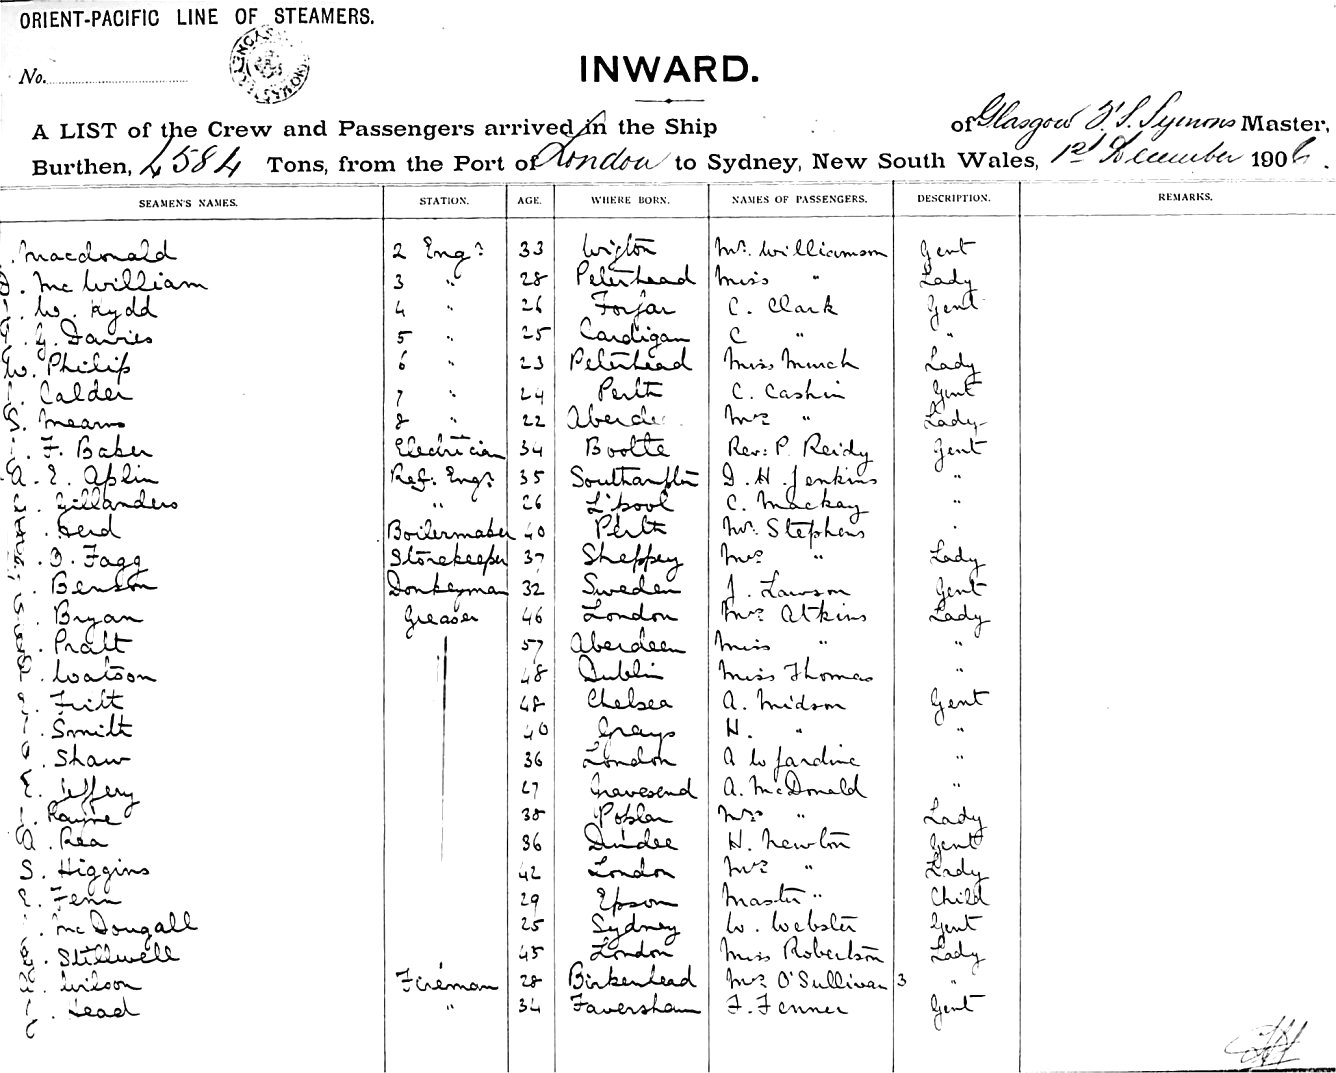 ORIENT-PACIFIC LINE OF STEAMERS.
No.
INWARD.
A LIST of the Crew and Passengers arrived in the Ship of Glasgow J. S. Symons Master,
Burthen, 4584 Tons, from the Port of London to Sydney, New South Wales, 1st December 1906.
SEAMEN'S NAMES. STATION. AGE. WHERE BORN. NAMES OF PASSENGERS. DESCRIPTION. REMARKS.
Macdonald 2 Engr 33 Wigton Mr. Williamson Gent
McWilliam 3 " 28 Peterhead Miss " Lady
W. Kydd 4 " 26 Forfar C. Clark Gent
G. Davies 5 " 25 Cardigan C " "
W. Philip 6 " 23 Peterhead Miss Murch Lady
Calder 7 " 24 Perth C. Cashin Gent
S. Mearns 8 " 22 Aberde Mrs " Lady
F. Baker Electrician 34 Bootle Rev: P. Reidy Gent
A. E. Aplin Ref. Engr 35 Southampton D. H. Jenkins "
Gillanders " 26 L'pool C. Mackay "
Herd Boilermaker 40 Perth Mr. Stephens "
Fagg Storekeeper 37 Sheppey Mrs " Lady
Benson Donkeyman 32 Sweden J. Lawson Gent
Bryan Greaser 46 London Mrs Atkins Lady
Pratt 57 Aberdeen Miss " "
Watson 48 Dublin Miss Thomas "
Frith 48 Chelsea A. Midson Gent
Smith 40 Grays H. " "
Shaw 36 London A W Jardine "
E. Jeffery 27 Gravesend A. McDonald "
Rayne 38 Poplar Mrs " Lady
A. Rea 36 Dundee H. Newton Gent
S. Higgins 42 London Mrs " Lady
E. Fenn 29 Epsom Master " Child
McDougall 25 Sydney W. Webster Gent
Stillwell 45 London Miss Robertson Lady
Wilson Fireman 28 Birkenhead Mrs O'Sullivan 3 "
Head " 34 Faversham F. Fenner Gent